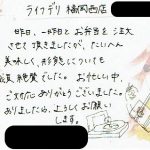 ライフデリ 福岡西店
昨日、一昨日とお弁当をご注文
させて頂きましたが、たいへん
美味しく、形態についても
絶賛でした。お忙しい中、
ご対応ありがとうございました。
ありましたら、よろしくお願い
します。